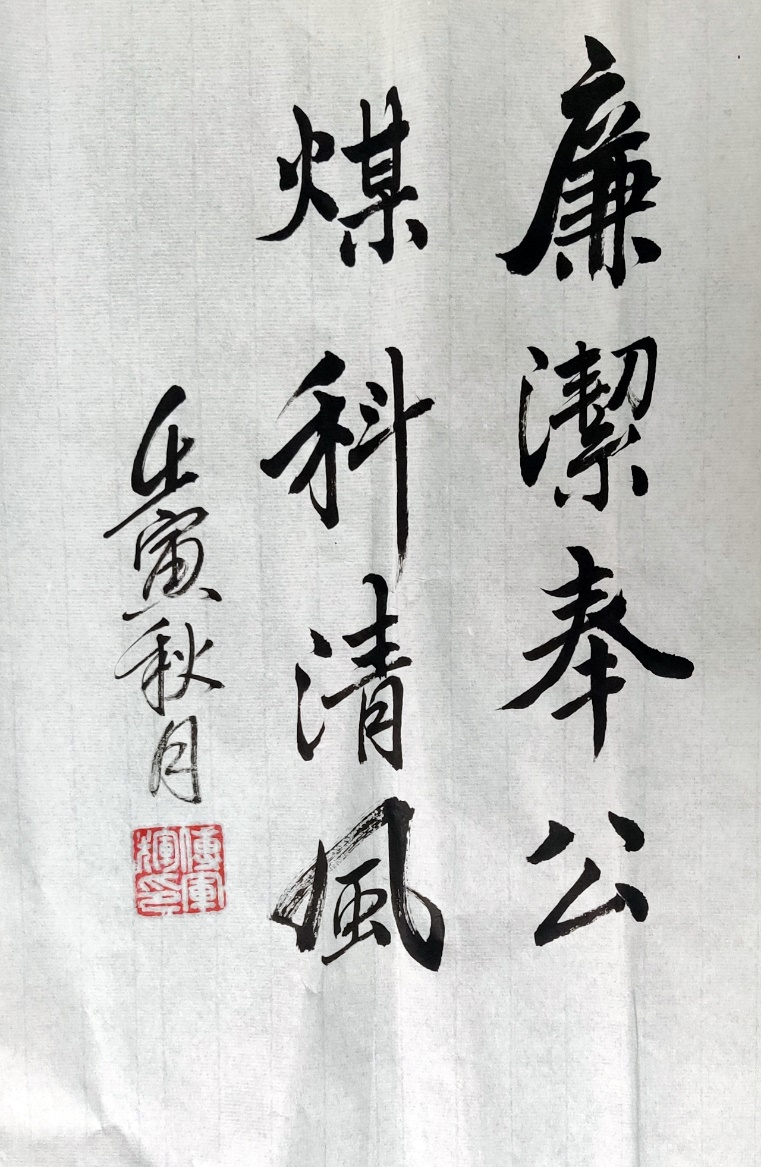 廉潔奉公
煤科清風
壬寅秋月